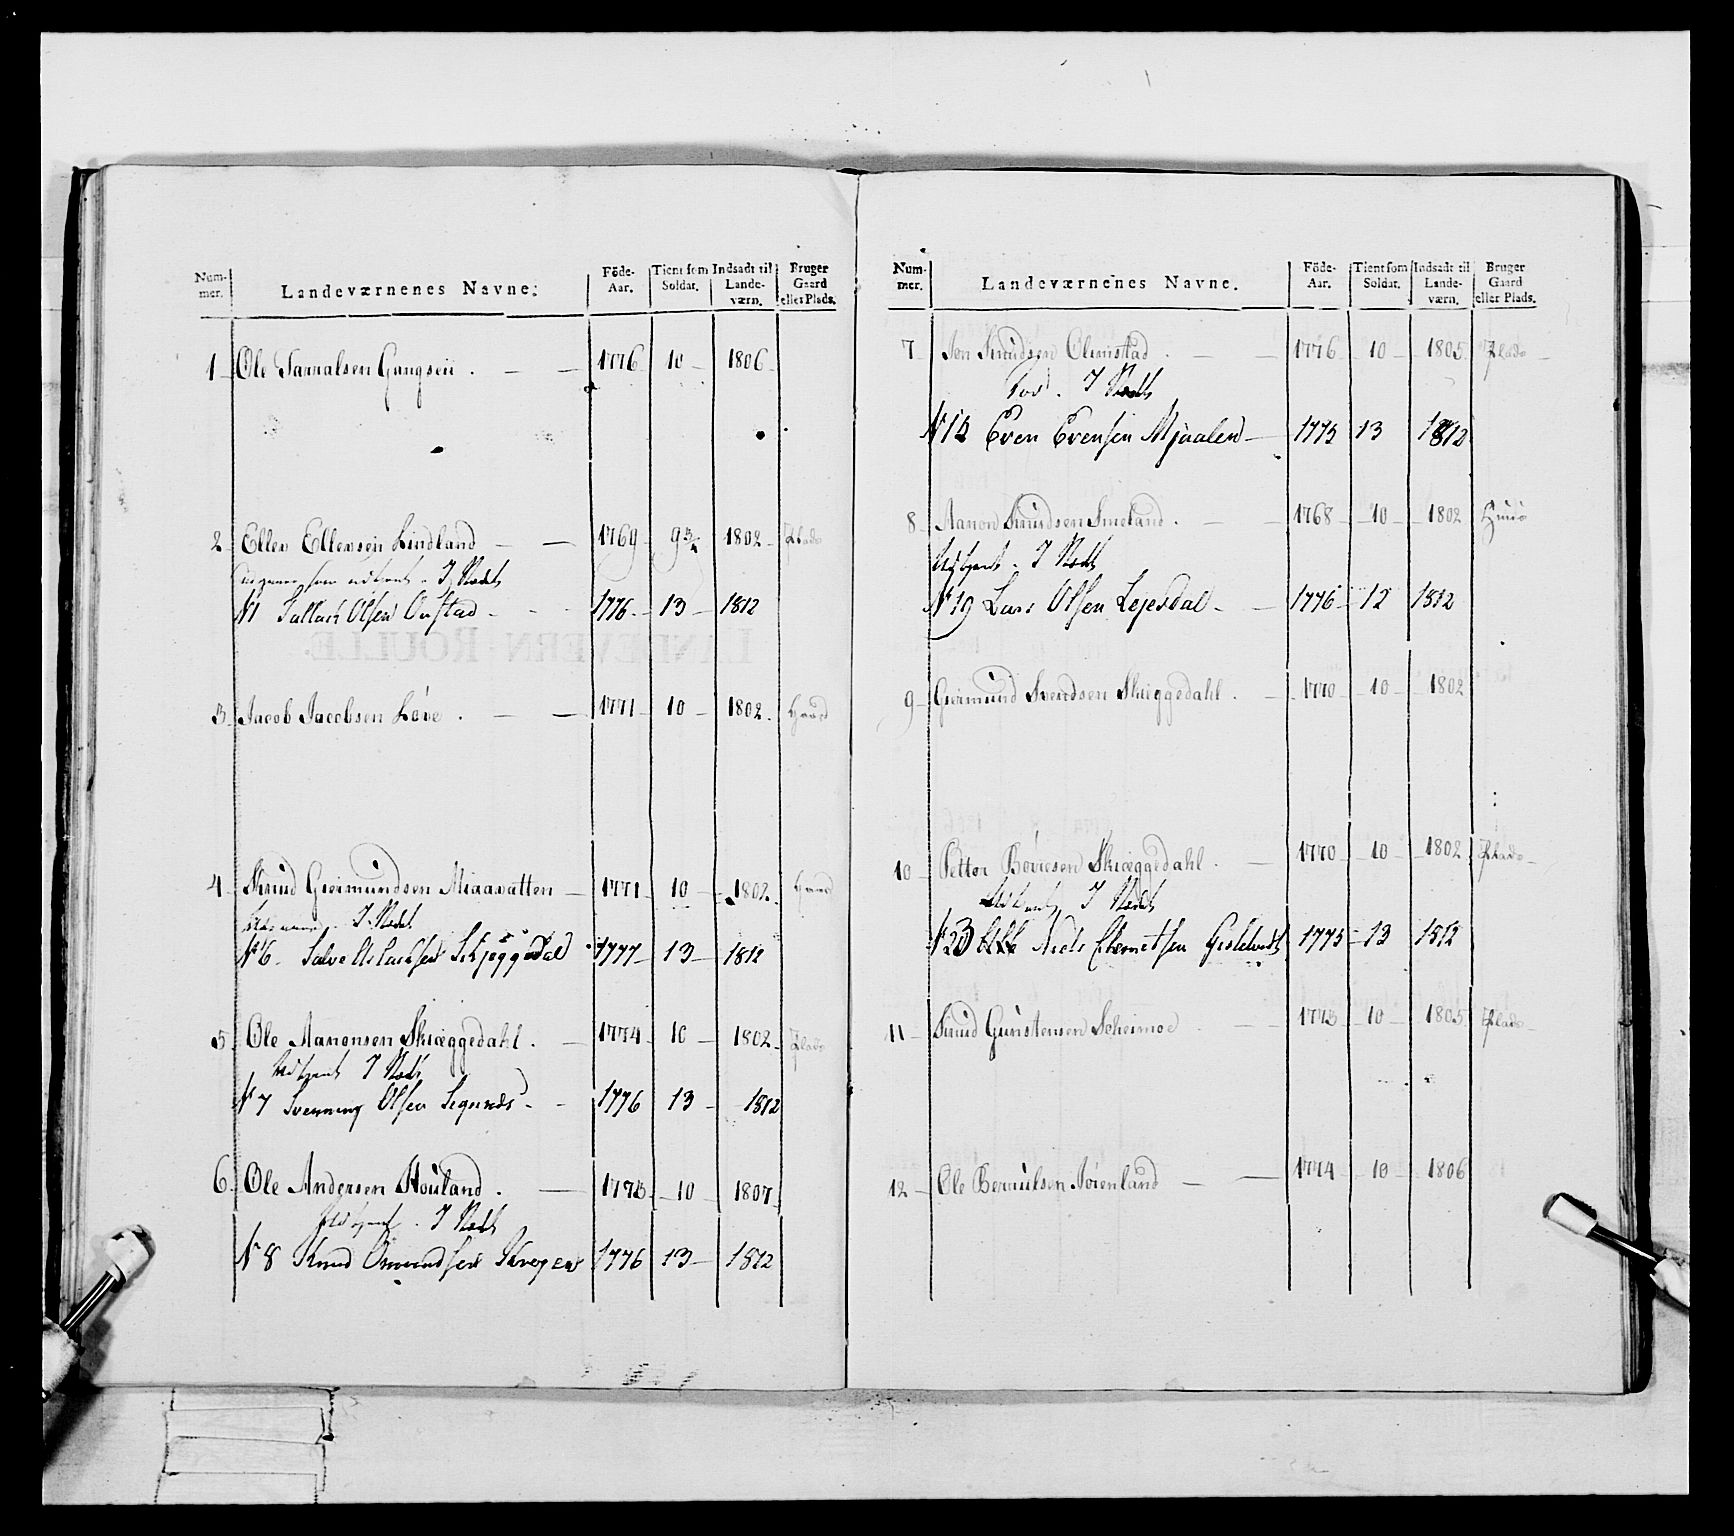 Num-
mer.
Landeværnenes Navne.
Föde-
Aar.
Tient som
Soldat.
Indsadt til
Lande-
værn.
Bruger
Gaard
eller Plads.
1 Ole Tarralsen Gangsei . 1776 10 1806
2 Ellev Ellevsen Lindland 1769 9 1802 Plads
I Stedet
N 1 Tallach Olsen Ovstad 1776 13 1812
3 Jacob Jacobsen Løve . 1771 10 1802 Huus
4 Knud Giermundsen Miaavatten 1771 10 1802
I Stedet
N 6 Salve Aslachsen Schjeggedal 1777 13 1812
5 Ole Aanonsen Skiæggedahl . 1774 10 1802 Plads
Udtjent I Stedet
N 7 Svenning Olsen 1776 13 1812
6 Ole Andersen Houland . 1773 10 1807
Udtjent . I Stedet
N 8 Knud Omundsen 1776 13 1812
Num-
mer.
Landeværnenes Navne.
Föde-
Aar.
Tient som
Soldat.
Indsadt til
Lande-
værn.
Bruger
Gaard
eller Plads.
7 Jon Knudsen Olimstad . 1776 10 1805 Plads
I Stedt
Even Evensen Mjaaland 1775 13 1812
8 Aanon Knudsen Smeland . 1768 10 1802 Huus
Udtjent . I Stedt
N 19 Lars Olsen Lejesdal 1776 12 1812
9 Giermund Svendsen Skiæggedahl . 1770 10 1802
10 Petter Børresen Skiæggedahl . 1770 10 1802 Plads
Udtjent I Stedet
N 23 Niels 1775 13 1812
11 Knud Gunstensen Scheimoe 1773 10 1805 Plads
12 Ole Beruulsen Nøienland 1774 10 1806